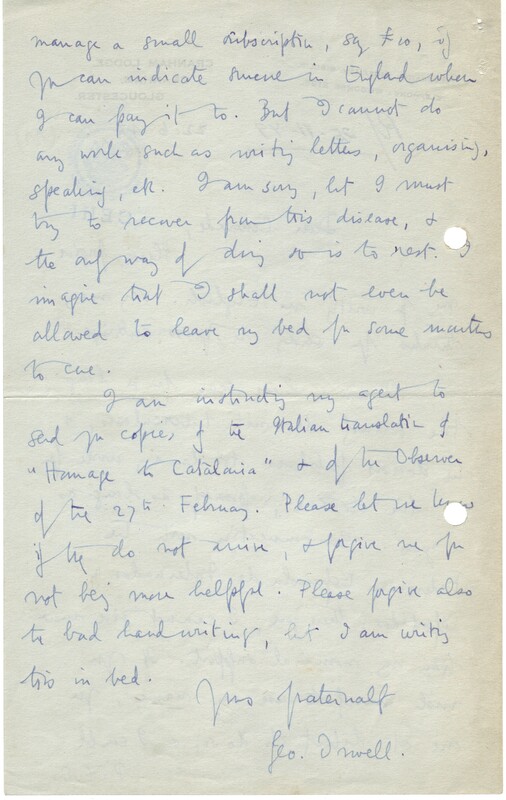 manage a small subscription, say £10, if
you can indicate someone in England whom
I can pay it to. But I cannot do
any work such as writing letters, organising,
speaking, etc. I am sorry, but I must
try to recover from this disease, &
the only way of doing so is to rest. I
imagine that I shall not even be
allowed to leave my bed for some months
to come.
I am instructing my agent to
send you copies of the Italian translation of
"Homage to Catalonia" & of the Observer
of the 27th February. Please let me know
if they do not arrive, & forgive me for
not being more helpful. Please forgive also
the bad handwriting, but I am writing
this in bed.
Yours fraternally
Geo. Orwell.
CRANHAM LODGE
GLOUCESTER